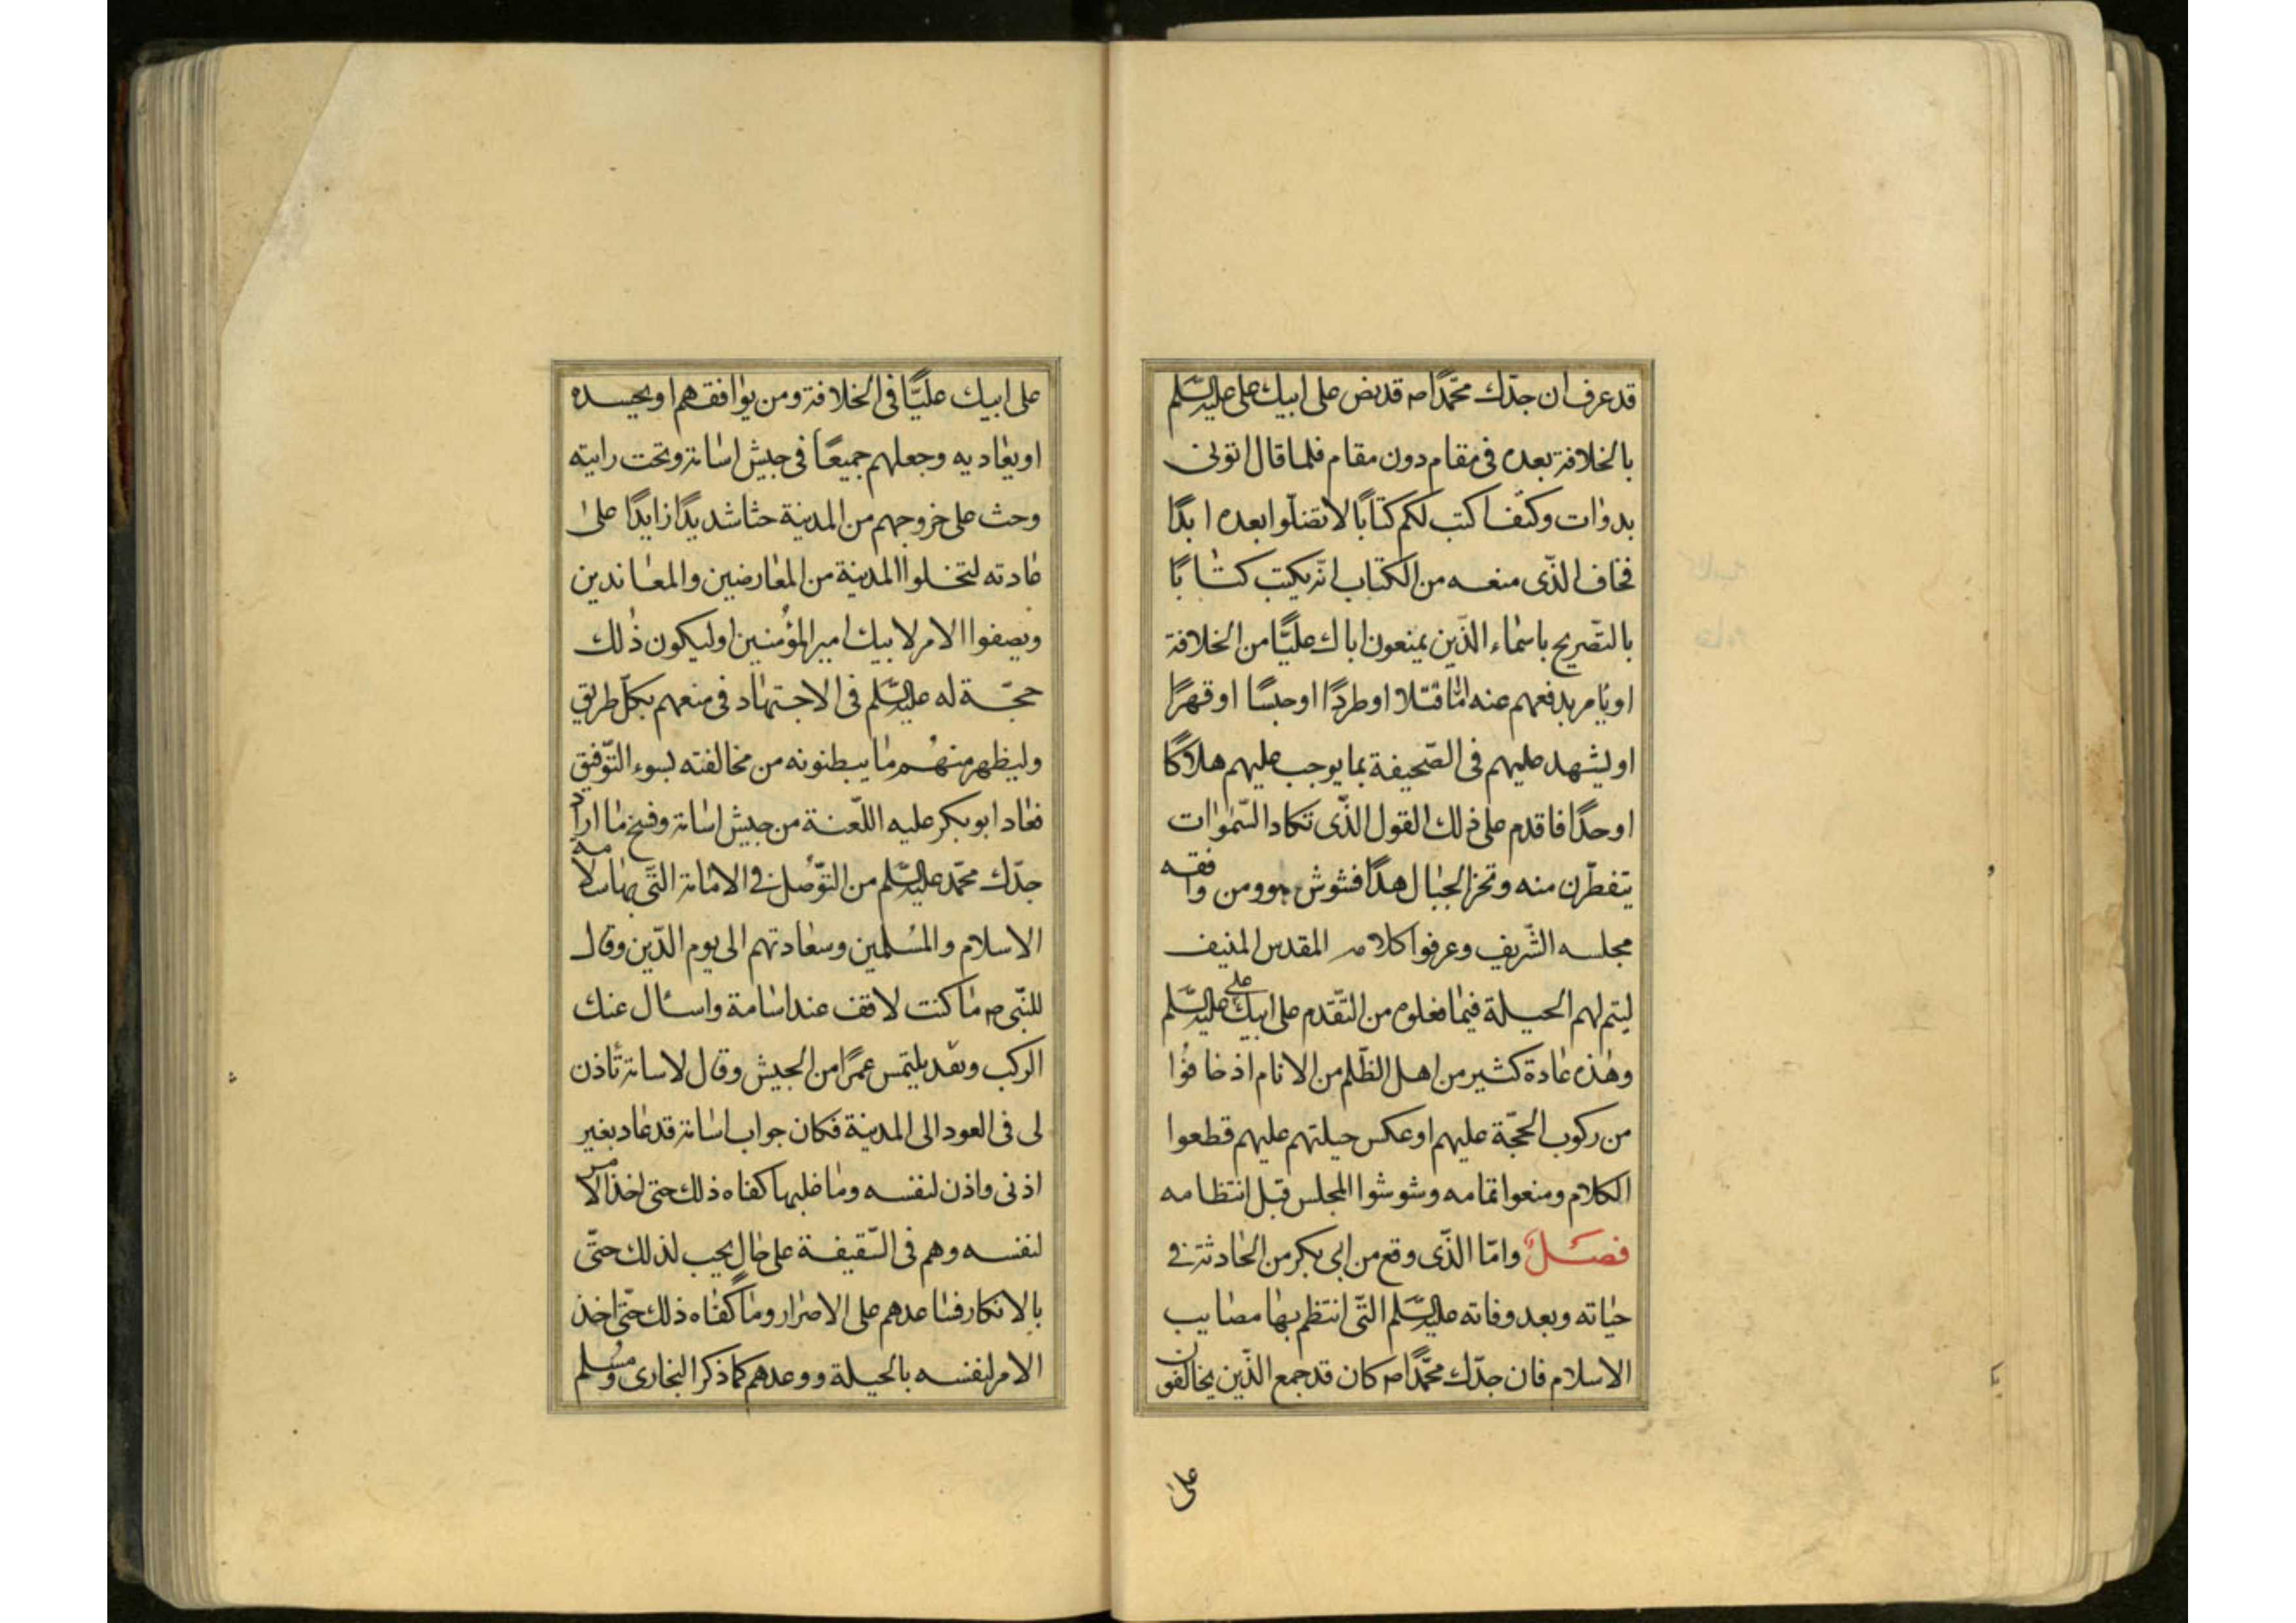 قد عرف ان جدّك محمّدًا ص قد نص على ابيك على عليه السّلم
بالخلافة بعده فى مقام دون مقام فلما قال اتونى
بدوات وكتف اكتب لكم كتابًا لا تضلّوا بعده ابدًا
فخاف الذّى منعه من الكتاب انّه يكتب كتابًا
بالتصّريح باسماء الذّين يمنعون اباك عليًّا من الخلافة
او يامر بدفعهم عنه امّا قتلا او طردًا او حبسًا او قهرًا
او ليشهد عليهم فى الصّحيفة بما يوجب عليهم هلاكًا
او حدًا فاقدم على ذلك القول الذّى تكاد السّموات
يتفطّرن منه وتخز الجبال هدًا فشوش هو ومن وافقه
مجلسه الشّريف وعرفوا كلامه المقدس المنيف
ليتم لهم الحيلة فيما فعلوه من التّقدم على ابيك على عليه السّلم
وهذه عادة كثير من اهل الظّلم من الانام اذ خافوا
من ركوب الحجّة عليهم او عكس حيلتهم عليهم قطعوا
الكلام ومنعوا تمامه وشوشوا المجلس قبل انتظامه
فصل وامّا الذّى وقع من ابى بكر من الحادثة فى
حياته وبعد وفاته عليه السّلم التّى انتظم بها مصايب
الاسلام فان جدّك محمّدًا ص كان قد جمع الذّين يخالفون
على
على ابيك عليًّا فى الخلافة ومن يوافقهم او يحسده
او يعاديه وجعلهم جميعًا فى جيش اسامة وتحت رايته
وحث على خروجهم من المدينة حثا شديدًا زايدًا على
عادته لتخلوا المدينة من المعارضين والمعاندين
ويصفوا الامر لابيك امير المؤمنين او ليكون ذلك
حجّة له عليه السّلم فى الاجتهاد فى منعهم بكلّ طريق
وليظهر منهم ما يبطنونه من مخالفته لسوء التّوفيق
فعاد ابو بكر عليه اللّعنة من جيش اسامة وفسخ ما اراد
جدّك محمّد عليه السّلم من التّوصل فى الامامة التّى بها سلامة
الاسلام والمسلمين وسعادتهم الى يوم الدّين وقال
للنّبى ص ما كنت لاقف عند اسامة واسال عنك
الركب وبعد يلتمس عمرًا من الجيش وقال لاسامة تأذن
لى فى العود الى المدينة فكان جواب اسامة قد عاد بغير
اذنى واذن لنفسه وما فليها كفاه ذلك حتى اخذ الامر
لنفسه وهم فى السّقيفة على حال يجب لذلك حتّى
بالانكار فساعدهم على الاصرار وما كفاه ذلك حتّى اخذ
الامر لنفسه بالحيلة ووعدهم كما ذكر البخارى ومسلم